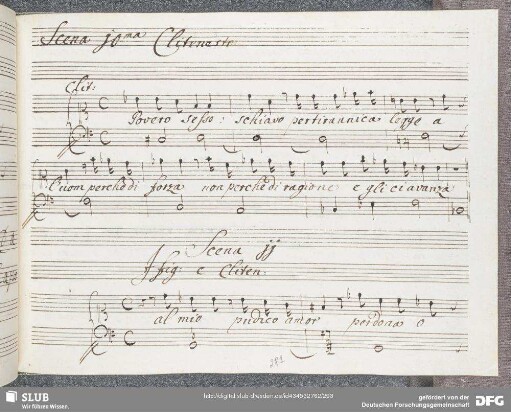 Scena jo ma Clitenestr:
Clit:
Povero sesso: schiavo per tirannica legge a
l'uom perche di forza non perche di ragione e gli ci avanza
Scena jj
Ifig: e Cliten:
al mio pudico amor perdona o
281
SLUB
Wir führen Wissen.
gefördert von der
Deutschen Forschungsgemeinschaft
DFG